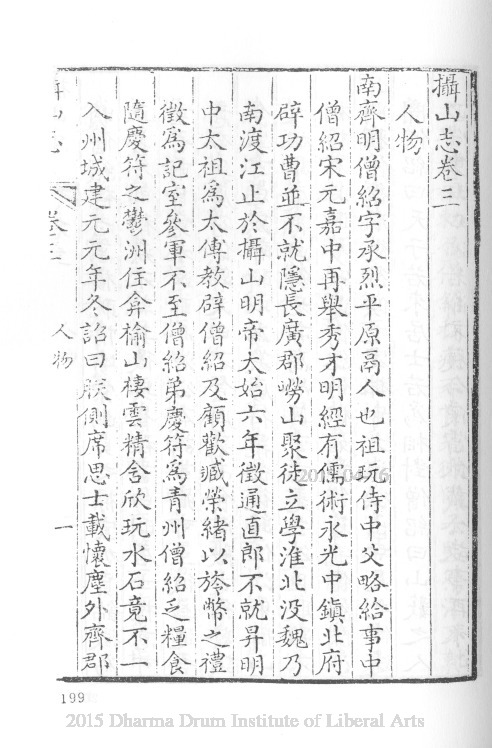 攝山志卷三
人物
南齊明僧紹字承烈平原鬲人也祖玩侍中父略給事中
僧紹宋元嘉中再舉秀才明經有儒術永光中鎮北府
辟功曹並不就隱長廣郡嶗山聚徒立學淮北没魏乃
南渡江止於攝山明帝太始六年徵通直郎不就昇明
中太祖為太傅教辟僧紹及顧歡臧榮緒以旍幣之禮
徵為記室參軍不至僧紹弟慶符為青州僧紹乏糧食
隨慶符之鬱洲住弇榆山棲雲精舍欣玩水石竟不一
入州城建元元年冬詔曰朕側席思士載懷塵外齊郡
卷三
人物
一
199
2015 Dharma Drum Institute of Liberal Arts